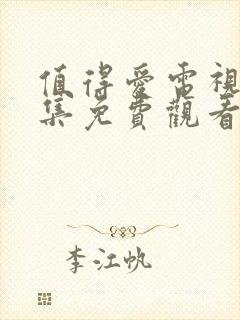 值得愛電視
集免費觀看
李江帆